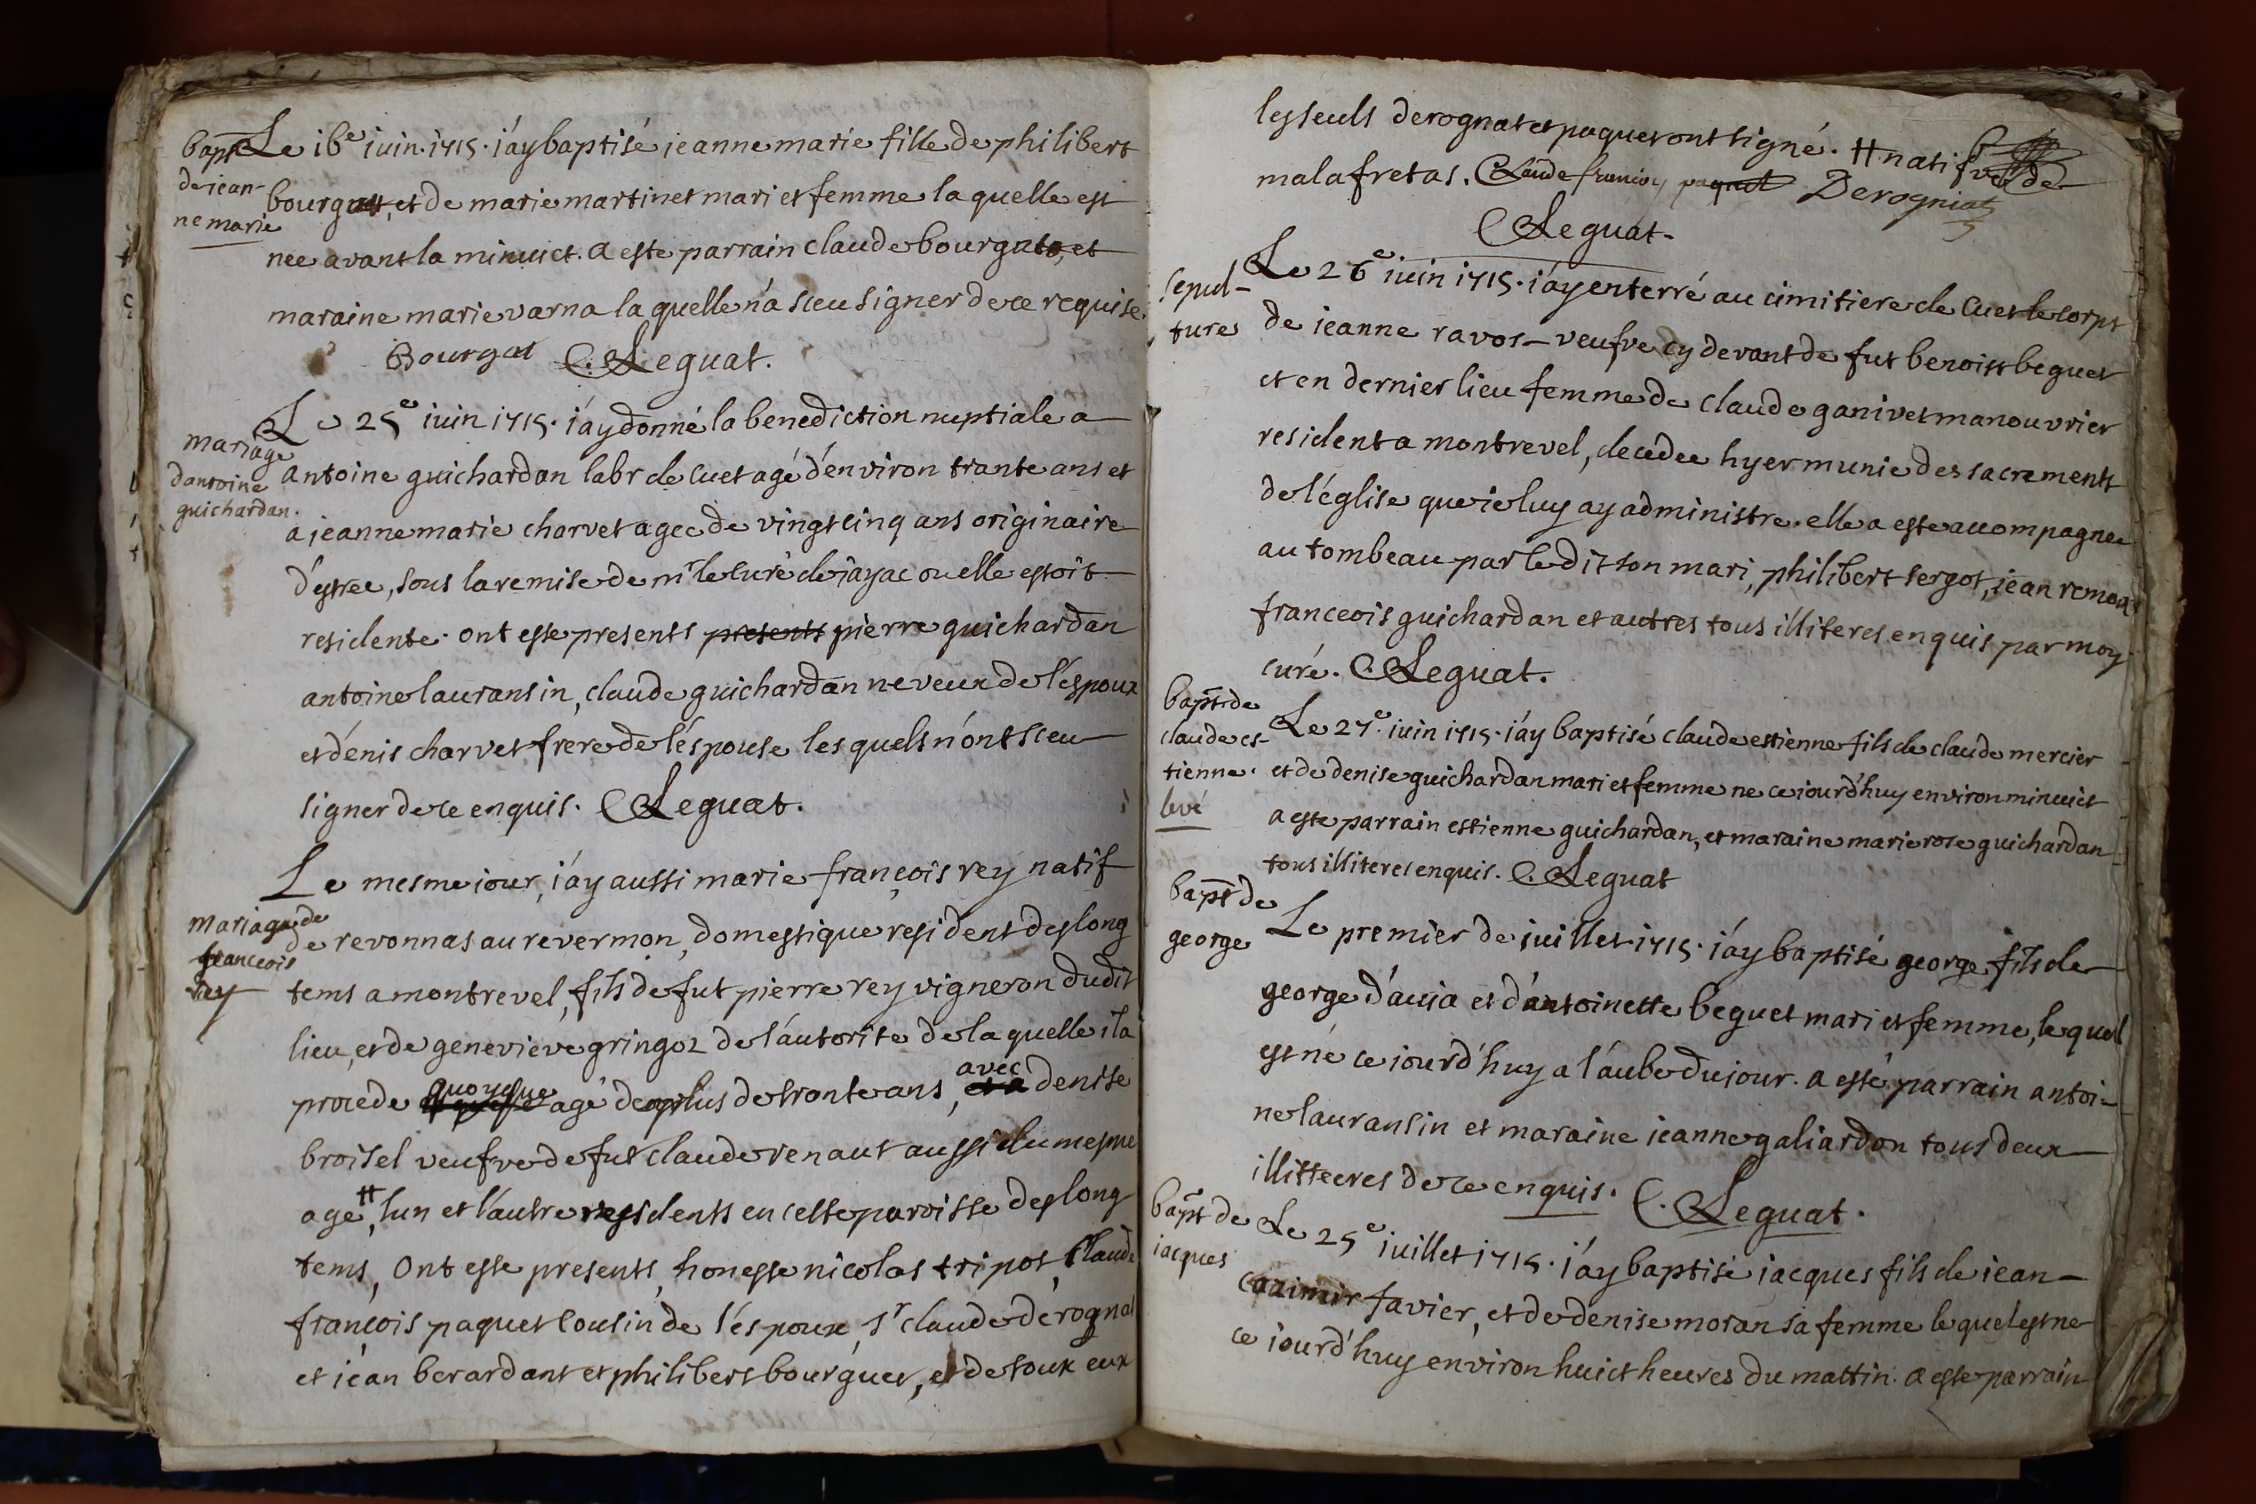 bapt
de jean-
ne marie
Le 16e iuin. 1715. i'ay baptisé ieanne marie fille de philibert
bourgat, et de marie martinet mari et femme laquelle est
nee avant la minuict. a este parrain claude bourgat, et
maraine marie varna la quelle n'a sceu signer de ce requise.
Bourgat C. Leguat.
mariage
dantoine
guichardan.
Le 25e iuin 1715. i'ay donné la benediction nuptiale a
antoine guichardan labr de Cuet agé d'environ trante ans et
a jeanne marie charvet agee de vingt cinq ans originaire
d'estree, sous la remise de mr le Curé de jayac ou elle estoit
residente. ont este presents presents pierre guichardan
antoine lauransin, claude guichardan neveux de l'espoux
et dénis charvet frere de l'espouse les quels n'ont sceu
signer de ce enquis. C. Leguat.
mariage de
franceois
rey
Le mesme jour, i'ay aussi marie françois rey natif
de revonnas au revermon, domestique resident deslong
tems a montrevel, fils de fut pierre rey vigneron dudit
lieu, et de genevieve gringoz de l'autorite de la quelle il a
procede quoyque agé de plus de tronte ans, avec denise
broisel veufve de fut claude renaut aussi du mesme
age #, lun et l'autre residents en cette paroisse deslong
tems, Ont este presents, honeste nicolas tripot, Claude
françois paquet Cousin de l'espoux, sr claude dérognat
et jéan berardant et philibert bourguet, et de toux eux
les seuls derognat et paquet ont signé. # natif ve de
malafretas. Claude francoy paquet Derogniat
C Leguat.
sepul-
ture
Le 26e iuin 1715. i'ay enterré au cimitiere de Cuet le corps
de jeanne ravos veufve cy devant de fut benoist beguet
et en dernier lieu femme de claude ganivet manouvrier
resident a montrevel, decedee hyer munie des sacrements
de l'église que ie luy ay administre. elle a este accompagnee
au tombeau par le dit son mari, philibert sergot, jean remon
franceois guichardan et autres tous illiteres enquis par moy
curé. C. Leguat.
bapt de
claude es-
tienne.
levé
Le 27e. iuin 1715. i'ay baptisé claude estienne fils de claude mercier
et de denise guichardan mari et femme ne ce iourd'huy environ minuict
a este parrain estienne guichardan, et maraine marie rose guichardan
tous illiteres enquis. C. Leguat
bapt de
george
Le premier de juillet 1715. i'ay baptisé george fils de
george d'auja et d'antoinette beguet mari et femme, le quel
est né ce jourd'huy a l'aube du jour. a esté parrain antoi-
ne lauransin et maraine jeanne galiardon tous deux
illitteeres de ce enquis. C. Leguat.
bapt de
jacques
Le 25e iuillet 1715. i'ay baptisé jacques fils de jean
cazimir favier, et de denise moran sa femme le quel est ne
ce iourd'huy environ huict heures du mattin. a este parrain